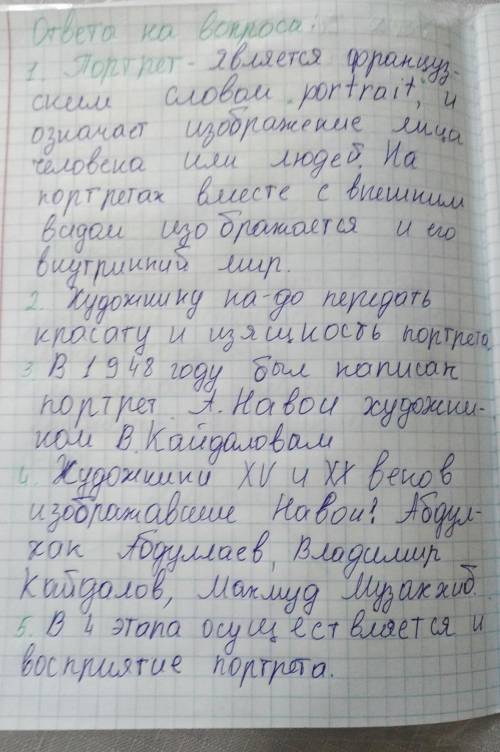 Ответа на вопроса:
1. Портрет - является француз-
ским словом portrait, и
означает изображение лица
человека или людей. На
портретах вместе с внешним
видом изображается и его
внутринний мир.
2. Художнику на-до передать
красату и изящность портрета
3. В 1948 году был написан
портрет А. Навои художни-
ком В. Кайдаловам
4. Художники XV и XX веков
изображавшие Навои: Абдул-
хак Абдуллаев, Владимир
Кайдалов, Махмуд Музаххиб.
5. В 4 этапа осуществляется и
восприятие портрета.